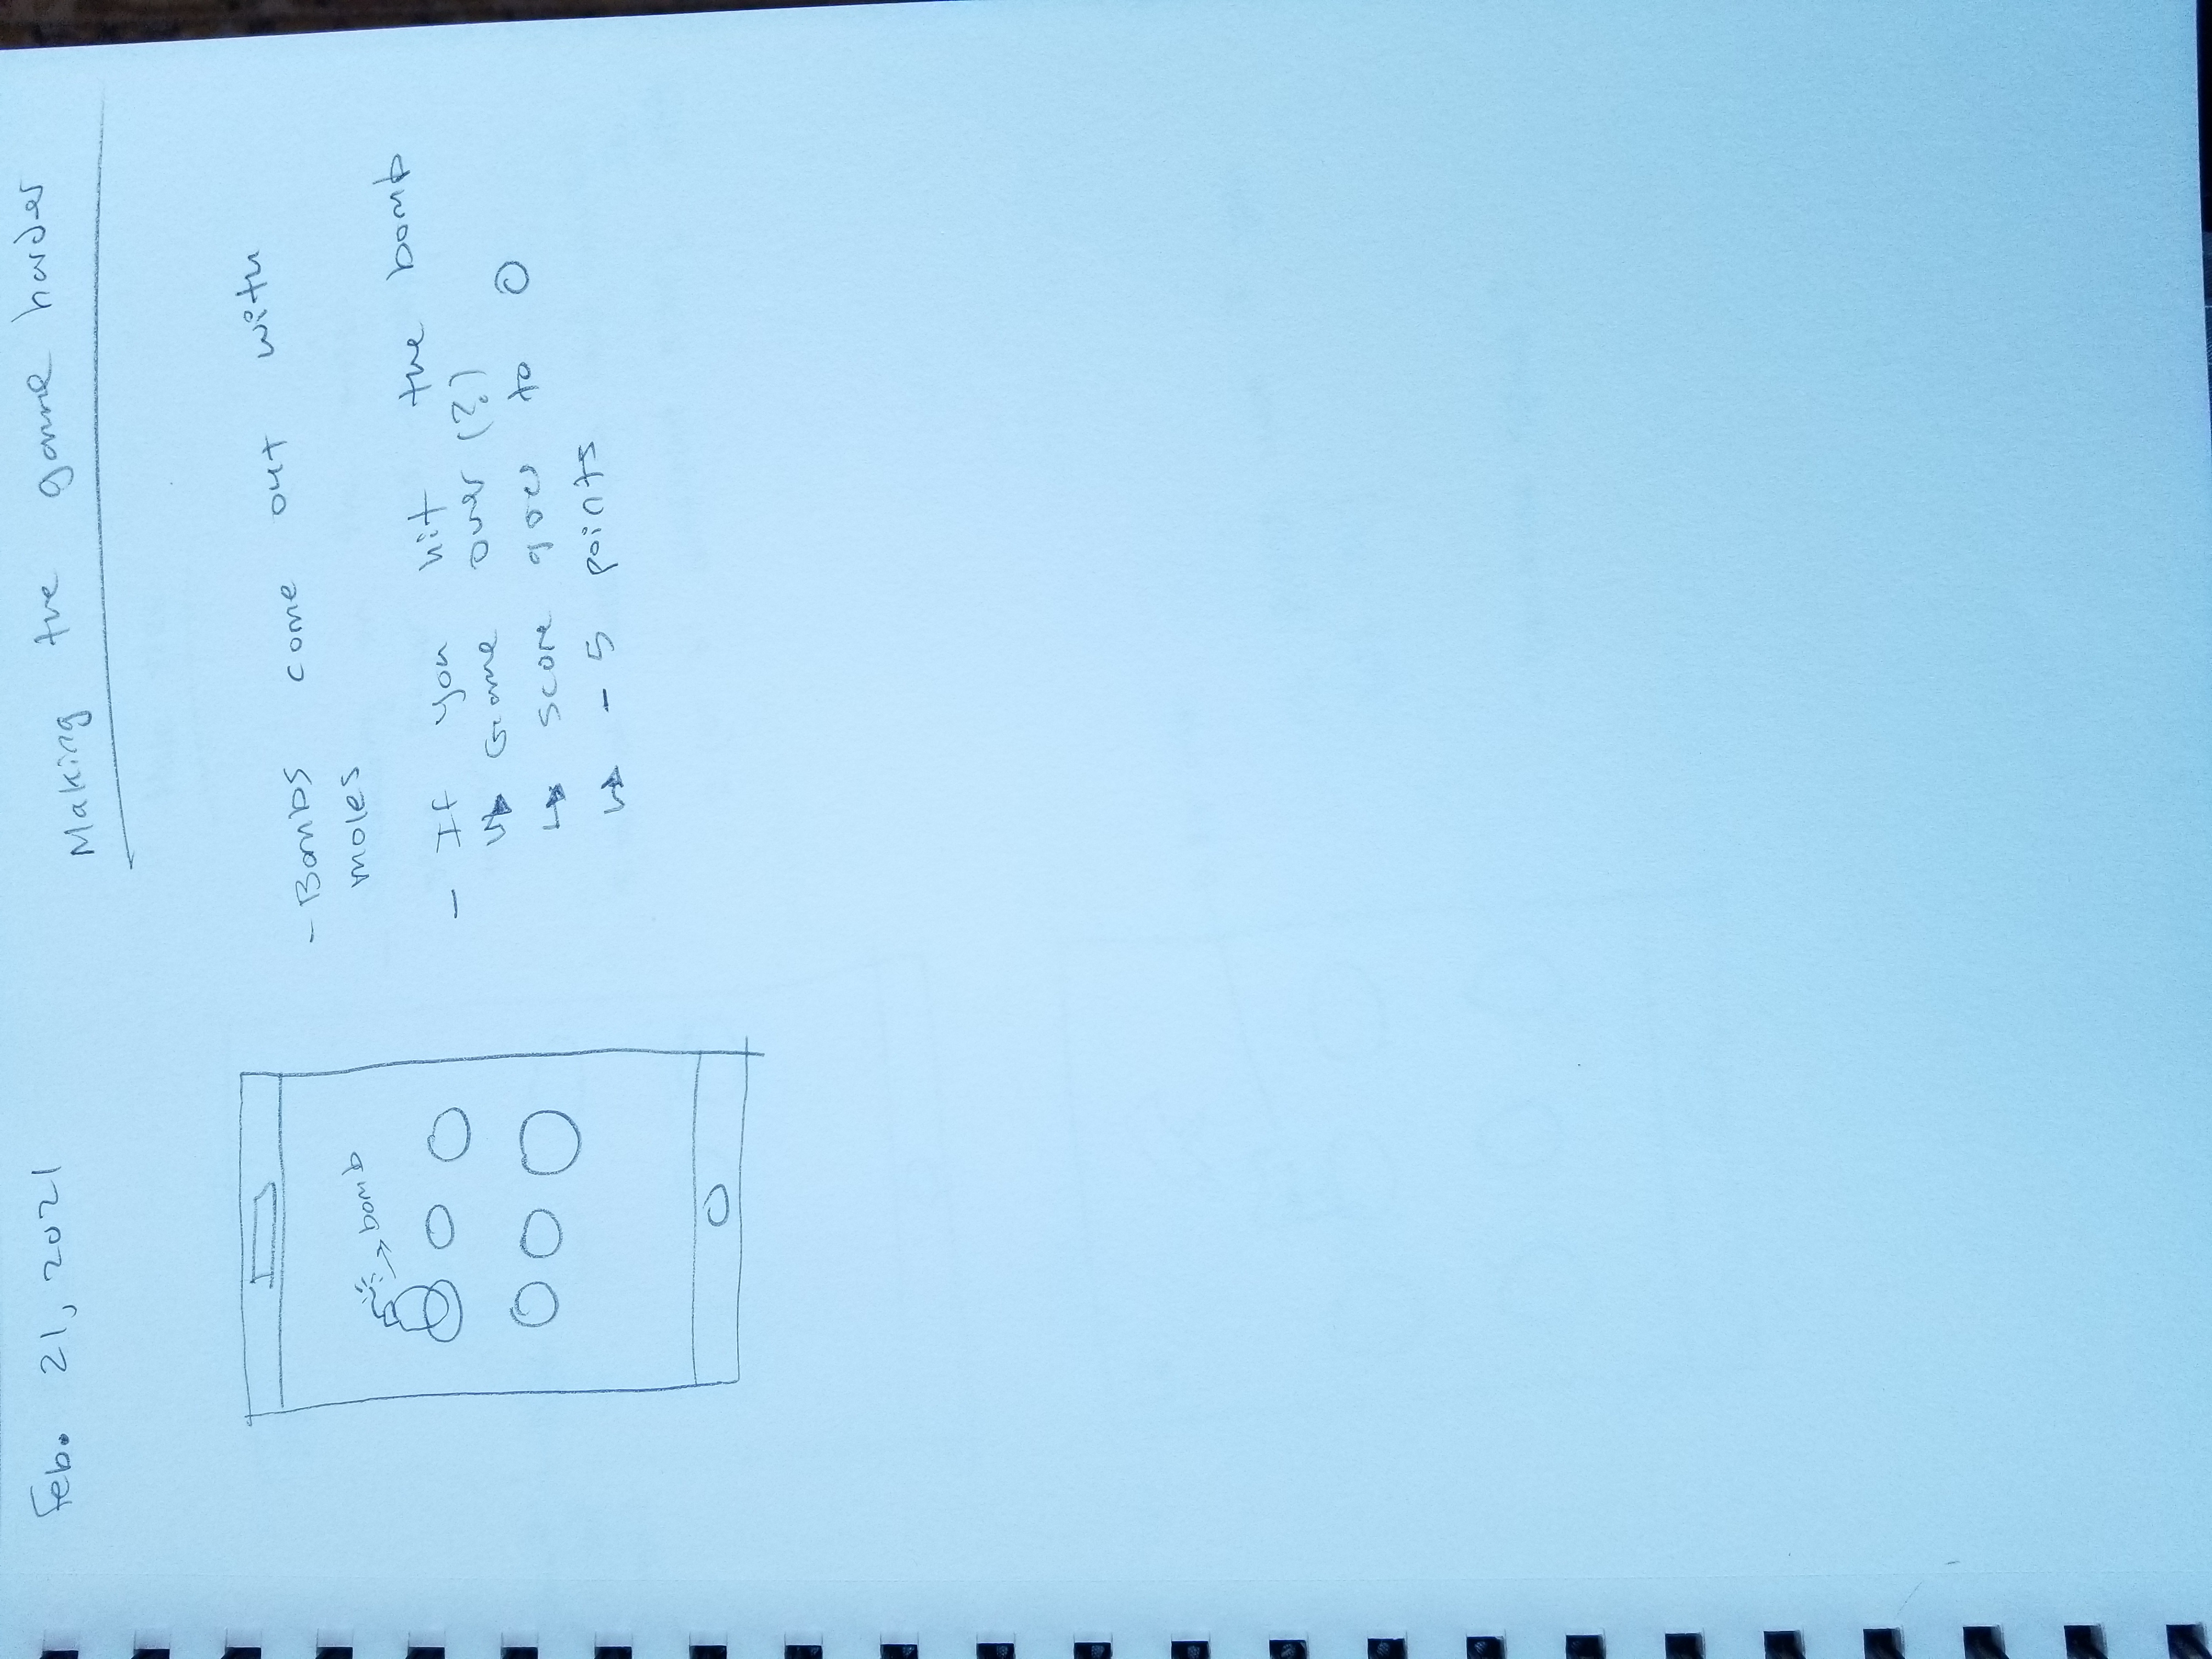 Feb. 21, 2021
Making the game harder
bomb
- Bombs come out with
moles
- If you hit the bomb
↳ Game over (?)
↳ score goes to 0
↳ - 5 points